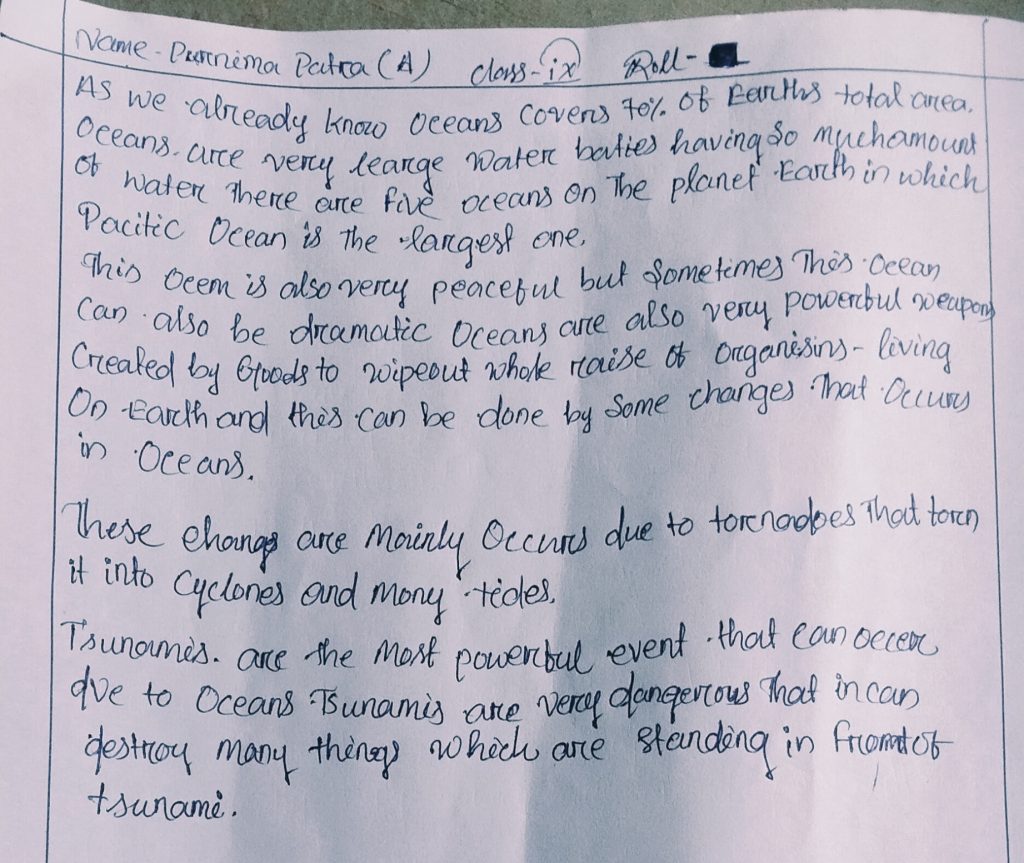 Name - Purnima Patra (A) class - ix Roll -
As we already know oceans covers 70% of Earths total area.
Oceans are very learge water baties having so much amount
of water there are five oceans on the planet Earth in which
Pacific Ocean is the largest one.
This Oceen is also very peaceful but sometimes This Ocean
Can also be dramatic Oceans are also very powerful weapons
Created by Goods to wipeout whole raise of organisins - living
On Earth and this can be done by some changes That Occurs
in Oceans.
These change are mainly Occurs due to tornadoes That torn
it into Cyclones and many tides.
Tsunamis. are the most powerful event that can occer
due to Oceans Tsunamis are very dangerous That in can
destroy many things which are standing in front of
tsunami.